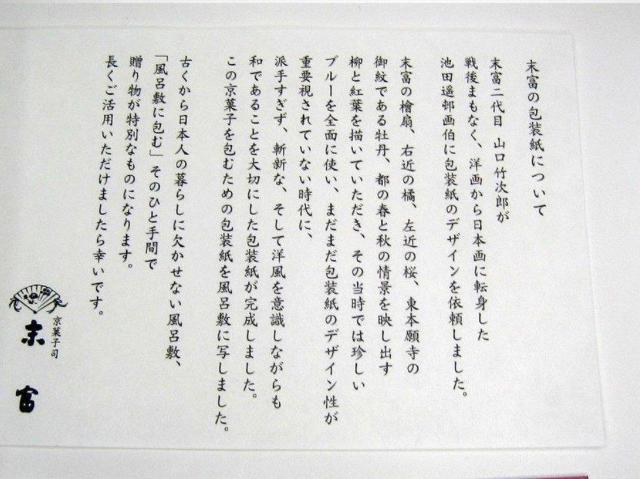 末富の包装紙について
末富二代目 山口竹次郎が
戦後まもなく、洋画から日本画に転身した
池田遥邨画伯に包装紙のデザインを依頼しました。
末富の檜扇、右近の橘、左近の桜、東本願寺の
御紋である牡丹、都の春と秋の情景を映し出す
柳と紅葉を描いていただき、その当時では珍しい
ブルーを全面に使い、まだまだ包装紙のデザイン性が
重要視されていない時代に、
派手すぎず、斬新な、そして洋風を意識しながらも
和であることを大切にした包装紙が完成しました。
この京菓子を包むための包装紙を風呂敷に写しました。
古くから日本人の暮らしに欠かせない風呂敷、
「風呂敷に包む」そのひと手間で
贈り物が特別なものになります。
長くご活用いただけましたら幸いです。
京菓子司
末富